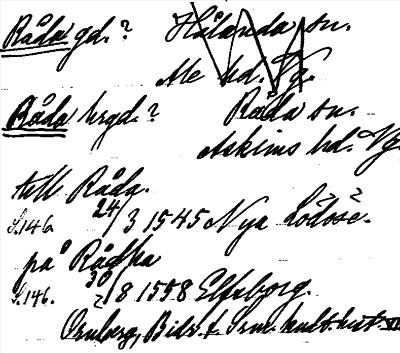 Råda gd.? Hålanda sn.
Ale hd. Vg.
Råda hrgd.? Råda sn.
Askims hd. Vg.
till Råda.
S.146. 24/3 1545 Nya Lödöse.
på Rådha
S.146. 30/8 1558 Elfsborg.
Örnberg, Bidr. t. Sv:s kult. hist. VI